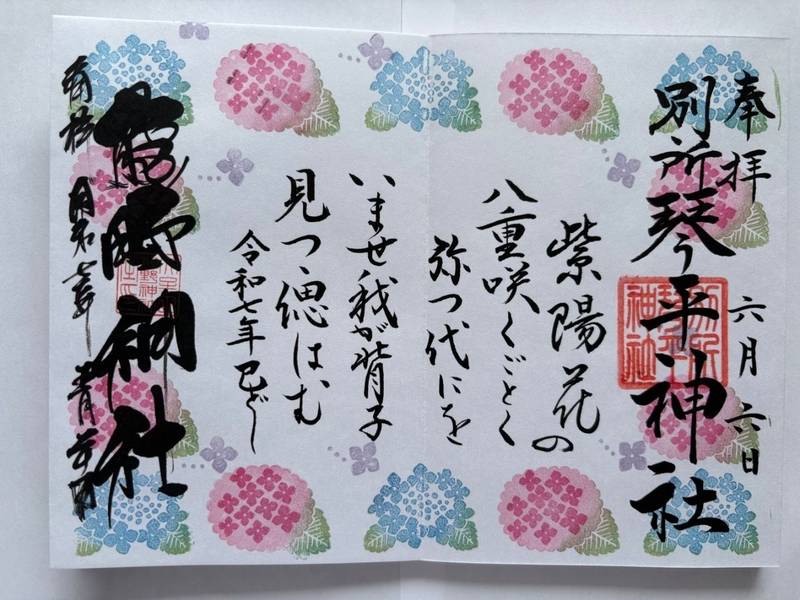 奉拝　六月六日
別所琴平神社
紫陽花の
八重咲くごとく
弥つ代にを
いませ我が背子
見つゝ偲はむ
令和七年　巳どし
熊野神社
奉拝　令和七年